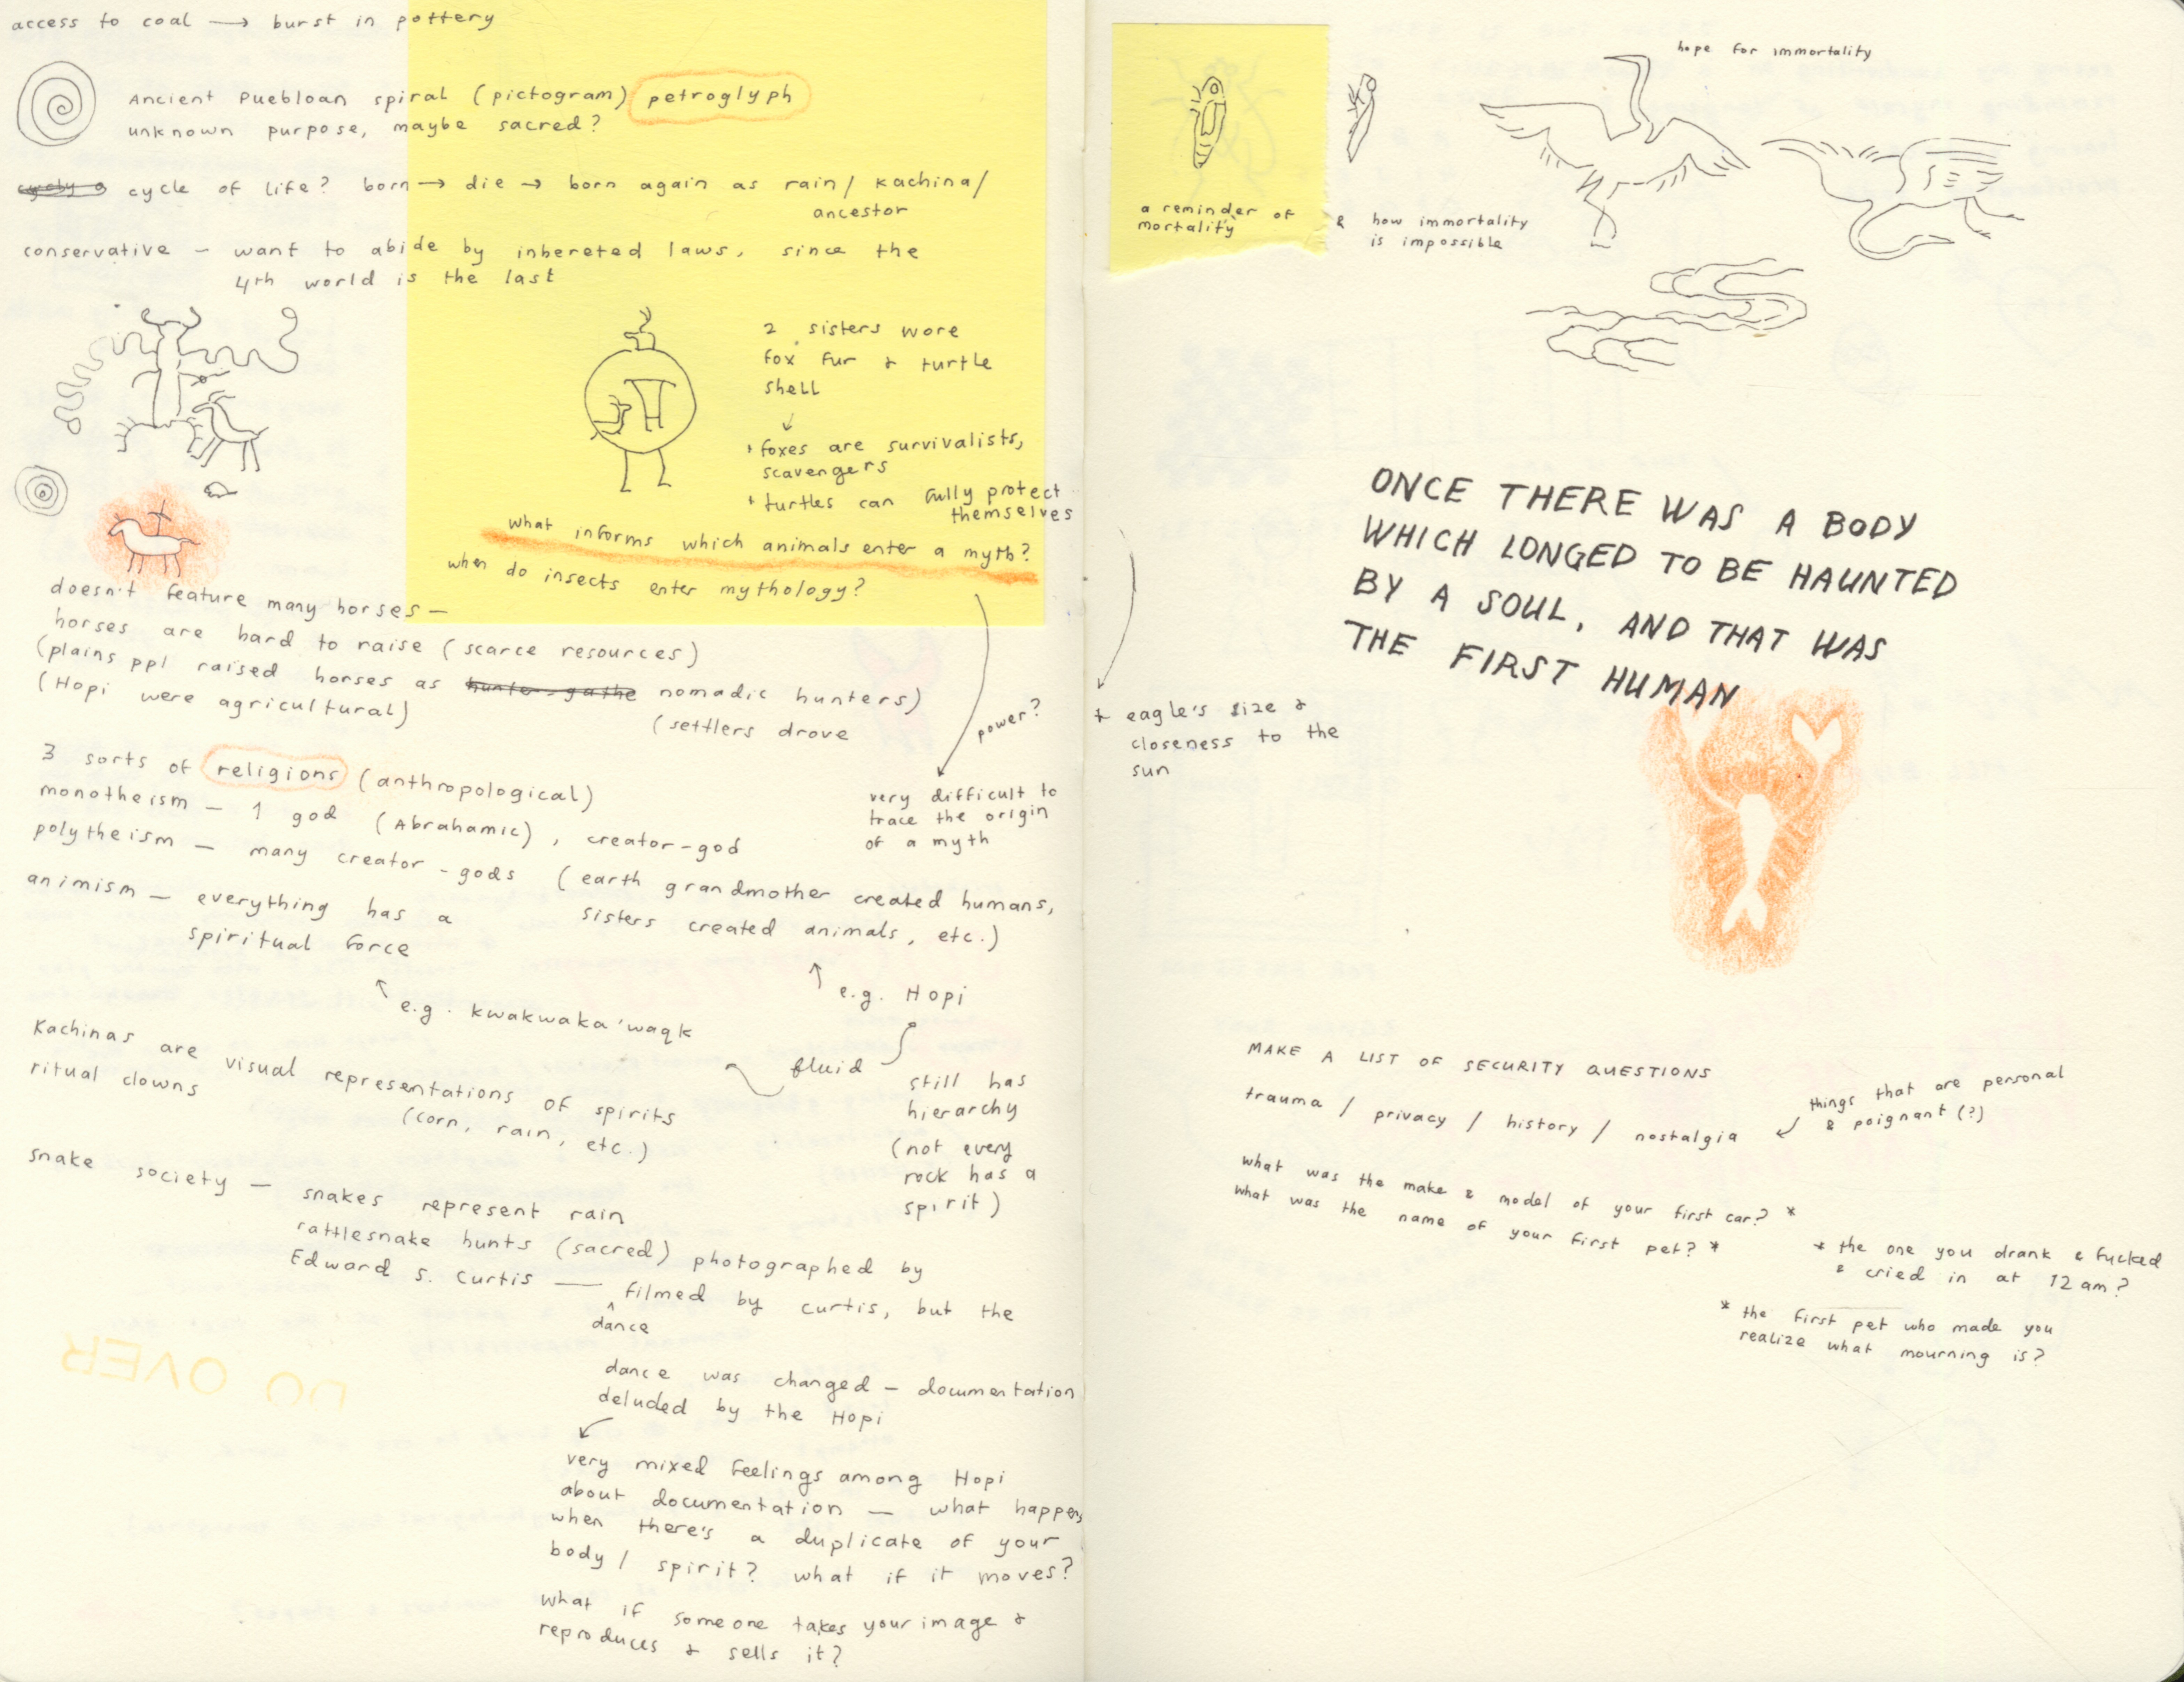 access to coal → burst in pottery
Ancient Puebloan spiral (pictogram) petroglyph
unknown purpose, maybe sacred?
cycle of life? born → die → born again as rain / kachina /
ancestor
conservative — want to abide by inhereted laws, since the
4th world is the last
2 sisters wore
fox fur & turtle
shell
↓
+ foxes are survivalists,
scavengers
+ turtles can fully protect
themselves
what informs which animals enter a myth?
when do insects enter mythology?
doesn't feature many horses —
horses are hard to raise (scarce resources)
(plains ppl raised horses as hunter-gathe nomadic hunters)
(Hopi were agricultural)
(settlers drove
power?
very difficult to
trace the origin
of a myth
3 sorts of religions (anthropological)
monotheism — 1 god (Abrahamic), creator-god
polytheism — many creator-gods (earth grandmother created humans,
sisters created animals, etc.)
animism — everything has a
spiritual force
↑ e.g. kwakwaka'waqk
↑ e.g. Hopi
fluid
still has
hierarchy
(not every
rock has a
spirit)
Kachinas are visual representations of spirits
(corn, rain, etc.)
ritual clowns
snake society — snakes represent rain
rattlesnake hunts (sacred) photographed by
Edward S. Curtis — filmed by curtis, but the
^
dance
dance was changed — documentation
deluded by the Hopi
very mixed feelings among Hopi
about documentation — what happens
when there's a duplicate of your
body / spirit? what if it moves?
what if someone takes your image &
reproduces & sells it?
DO OVER
a reminder of
mortality
& how immortality
is impossible
hope for immortality
ONCE THERE WAS A BODY
WHICH LONGED TO BE HAUNTED
BY A SOUL, AND THAT WAS
THE FIRST HUMAN
+ eagle's size &
closeness to the
sun
MAKE A LIST OF SECURITY QUESTIONS
trauma / privacy / history / nostalgia
things that are personal
& poignant (?)
what was the make & model of your first car? *
what was the name of your first pet? *
* the one you drank & fucked
& cried in at 12 am?
* the first pet who made you
realize what mourning is?